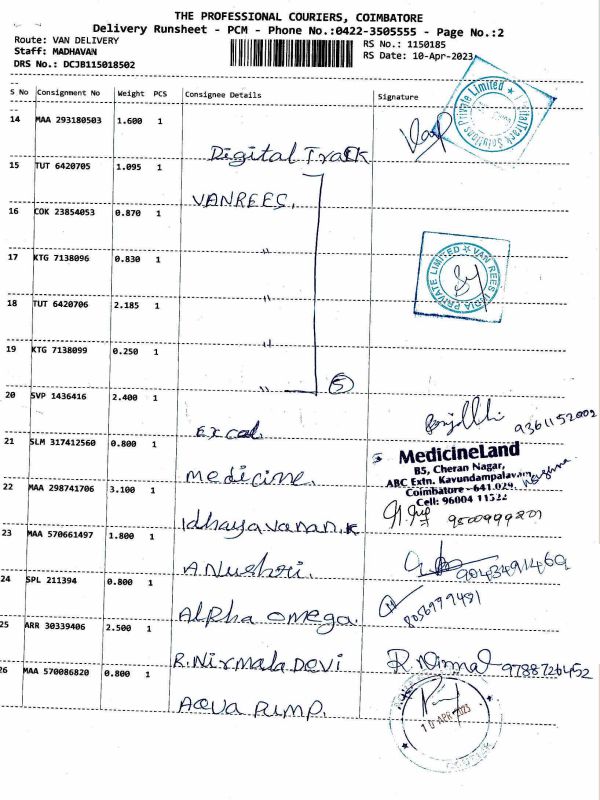 THE PROFESSIONAL COURIERS, COIMBATORE
Delivery Runsheet - PCM - Phone No.:0422-3505555 - Page No.:2
Route: VAN DELIVERY
RS No.: 1150185
Staff: MADHAVAN
RS Date: 10-Apr-2023
DRS No.: DCJB115018502
S No Consignment No Weight PCS Consignee Details Signature
14 MAA 293180503 1.600 1
Digital Track
15 TUT 6420705 1.095 1
VANREES.
16 COK 23854053 0.870 1
"
17 KTG 7138096 0.830 1
"
18 TUT 6420706 2.185 1
"
19 KTG 7138099 0.250 1
" 5
20 SVP 1436416 2.400 1
Excel. 9361152002
21 SLM 317412560 0.800 1
medicine.
MedicineLand
B5, Cheran Nagar,
ABC Extn. Kavundampalayam,
Coimbatore - 641 029.
Cell: 96004 11522
22 MAA 298741706 3.100 1
Idhayavanan.K
23 MAA 570661497 1.800 1
ANushri.
24 SPL 211394 0.800 1
Alpha omega. 8056979491
25 ARR 30339406 2.500 1
R.Nirmala Devi R. Nirmal 9788726452
26 MAA 570086820 0.800 1
AQUA PUMP.
VAN REES
PRIVATE LIMITED
10 APR 2023